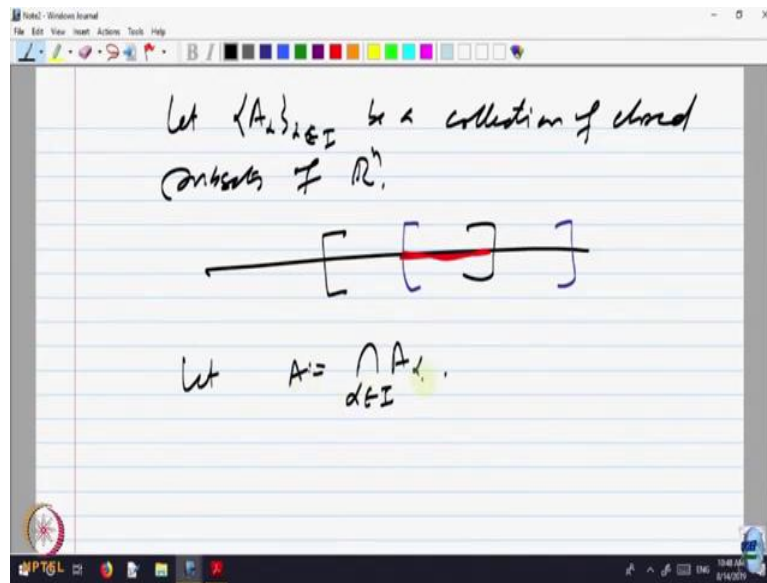 Note2 - Windows Journal
File Edit View Insert Actions Tools Help
B I
Let {A_α}_{α∈I} be a collection of closed
subsets of ℝⁿ.
Let A := ⋂_{α∈I} A_α.
NPTEL
ENG
10:48 AM
8/14/2019